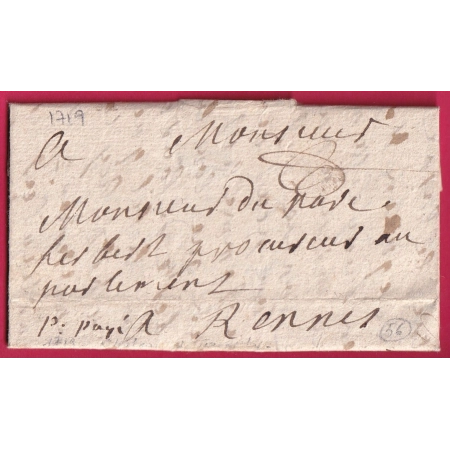 1719
a Monsieur
Monsieur du parc
herbert procureur au
parlement
p: payé a Rennes
56